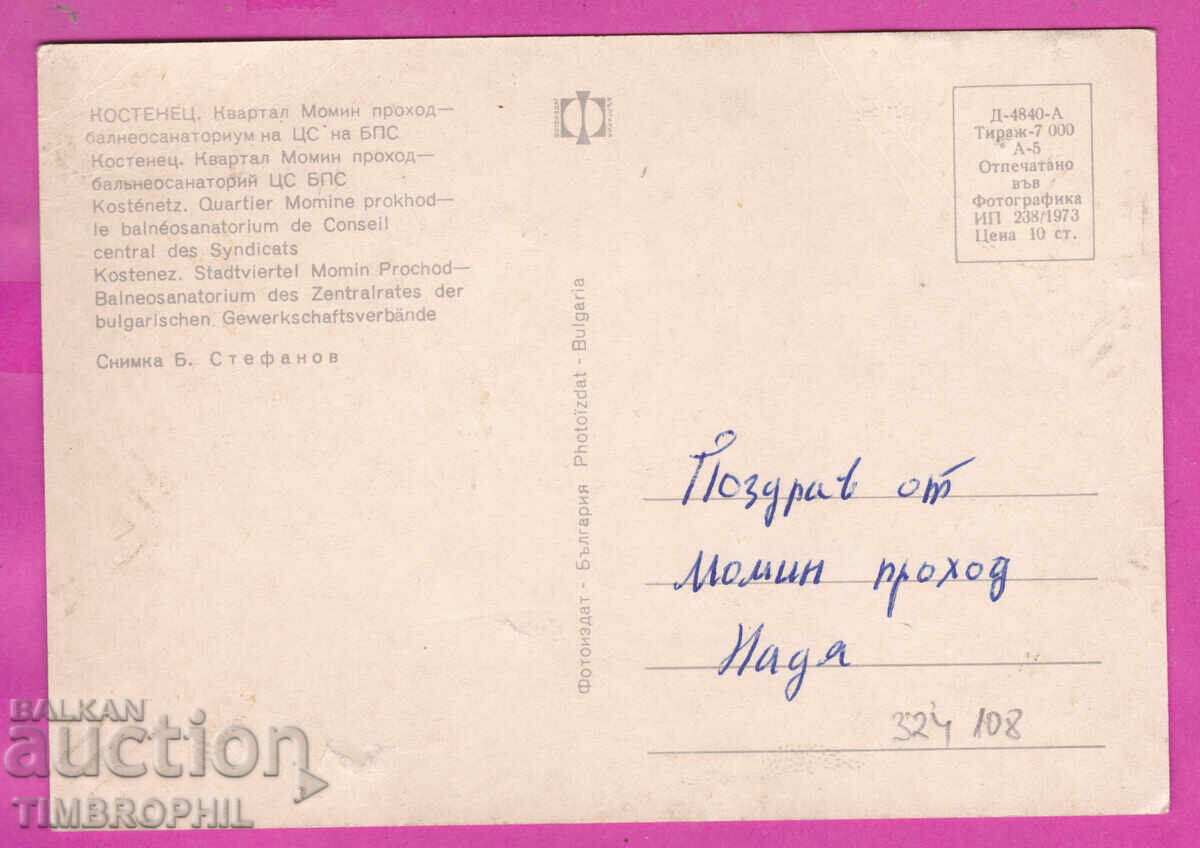 КОСТЕНЕЦ. Квартал Момин проход—
балнеосанаториум на ЦС на БПС
Костенец. Квартал Момин проход—
бальнеосанаторий ЦС БПС
Kosténetz. Quartier Momine prokhod—
le balnéosanatorium de Conseil
central des Syndicats
Kostenez. Stadtviertel Momin Prochod—
Balneosanatorium des Zentralrates der
bulgarischen Gewerkschaftsverbände
Снимка Б. Стефанов
Фотоиздат - България Photoïzdat - Bulgaria
Д-4840-А
Тираж-7 000
А-5
Отпечатано
във
Фотографика
ИП 238/1973
Цена 10 ст.
Поздрав от
Момин проход
Надя
324 108
BALKAN
auction
TIMBROPHIL